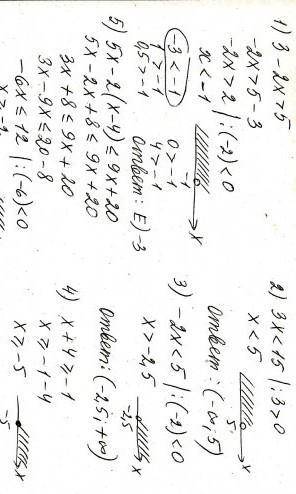 1) 3-2x>5
-2x>5-3
-2x>2 |:(-2)<0
x<-1
-1 x
-3<-1 0>-1
1>-1 4>-1
0,5>-1 Ответ: Е) -3
5) 5x-2(x-4)≤9x+20
5x-2x+8≤9x+20
3x+8≤9x+20
3x-9x≤20-8
-6x≤12 |:(-6)<0
x≥-2
2) 3x<15 |:3>0
x<5
5 x
Ответ: (-∞; 5)
3) -2x<5 |:(-2)<0
x>-2,5
-2,5 x
Ответ: (-2,5; +∞)
4) x+4≥-1
x≥-1-4
x≥-5
-5 x